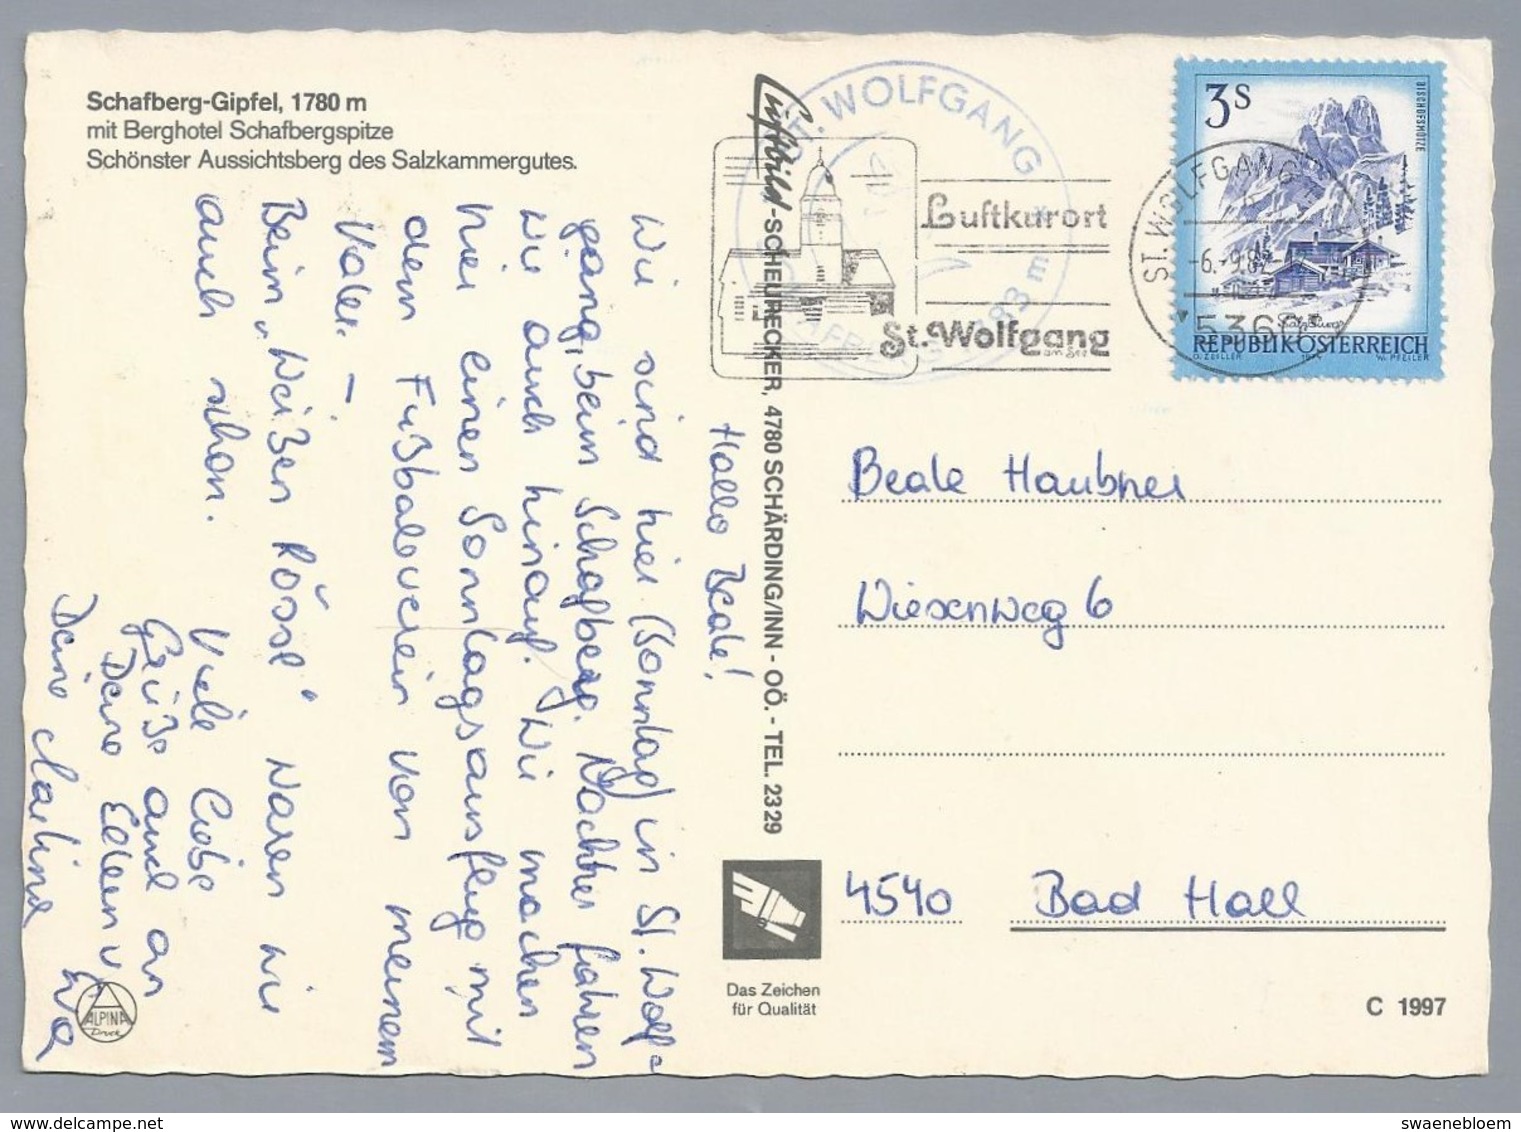 Schafberg-Gipfel, 1780 m
mit Berghotel Schafbergspitze
Schönster Aussichtsberg des Salzkammergutes.
Hallo Beate!
Wir sind hier (Sonntag) in St. Wolf=
gang, beim Schafberg. Nachher fahren
wir auch hinauf. Wir machen
hier einen Sonntagsausflug mit
dem Fußballverein von meinem
Vater. –
Beim „Weißen Rössl“ waren wir
auch schon.
Viele liebe
Grüße auch an
Deine Eltern v.
Deine Martina
Eva
ALPINA
Druck
Luftbild-SCHEURECKER, 4780 SCHÄRDING/INN - OÖ. - TEL. 2329
ST. WOLFGANG
83 m
Luftkurort
St. Wolfgang
am See
ST. WOLFGANG
-6.-9.82
5360
3 S
BISCHOFSMÜTZE
Salzburg
REPUBLIK ÖSTERREICH
O. ZEILLER
W. PFEILER
Beate Haubner
Wiesenweg 6
4540 Bad Hall
Das Zeichen
für Qualität
C 1997
swaenebloem